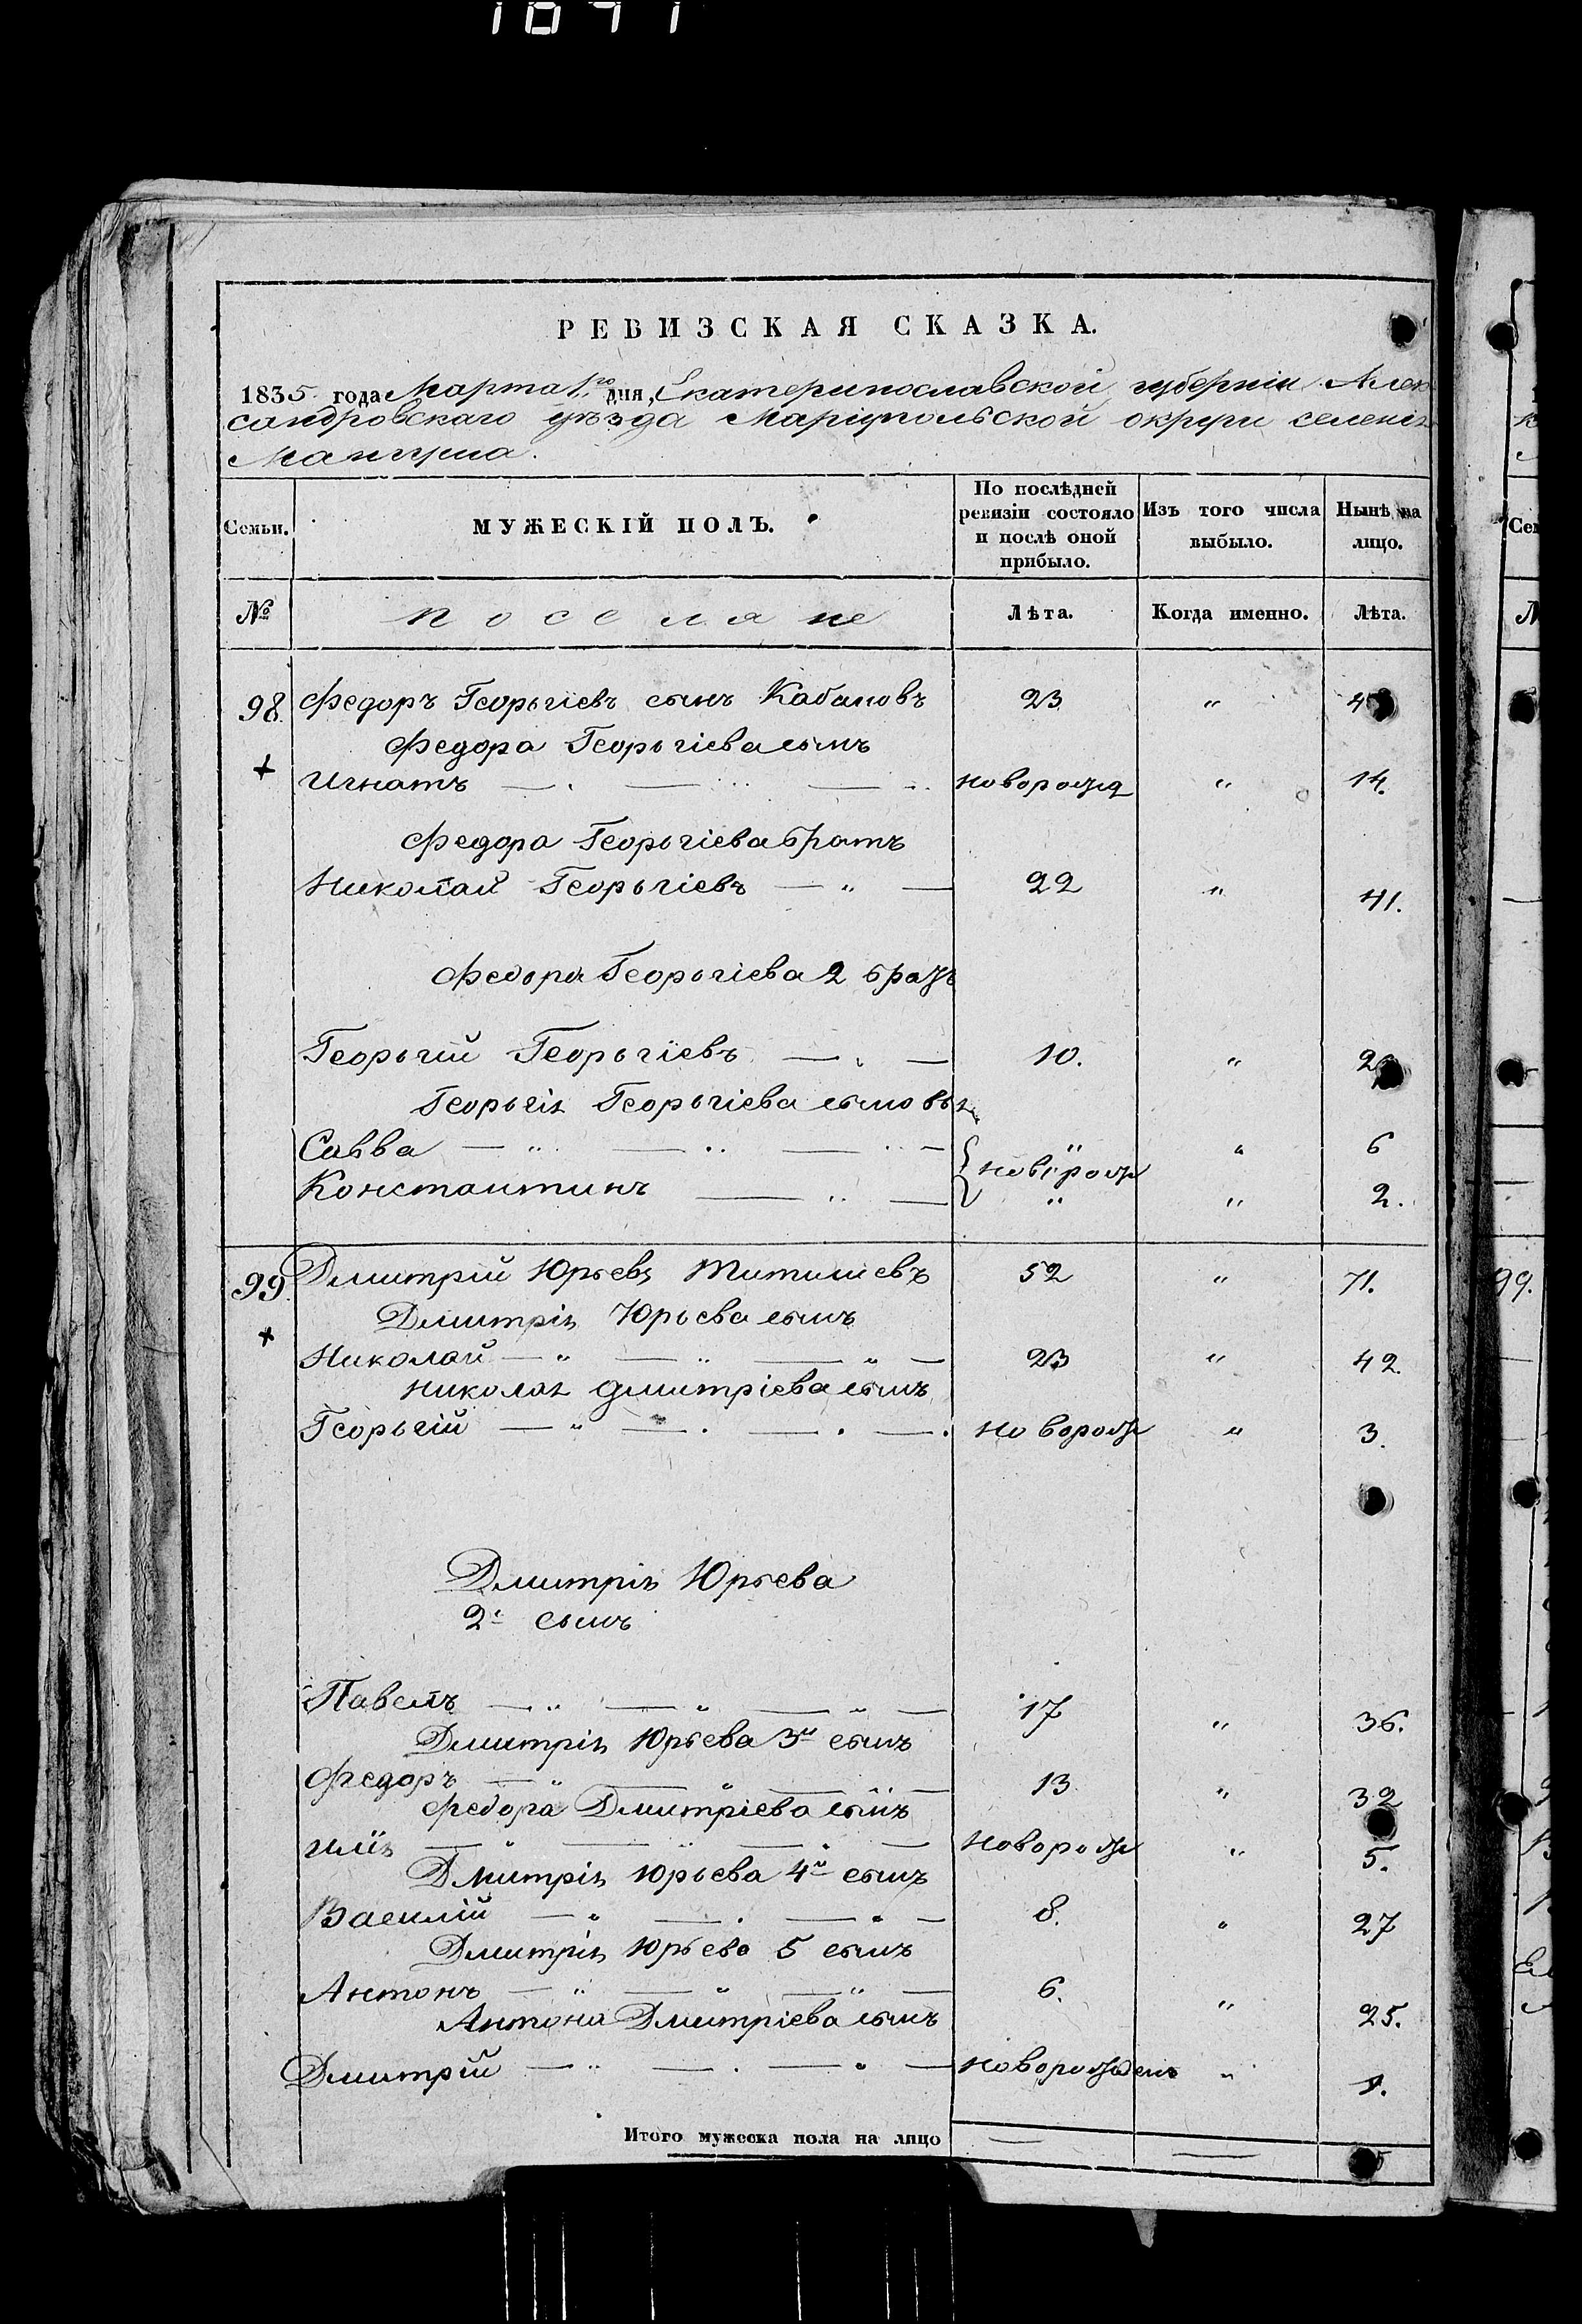 РЕВИЗСКАЯ СКАЗКА.
1835 года Марта 1го дня, Екатеринославской губерніи Алек
сандровскаго уѣзда Маріупольской округи селенія
Мангуша.
Семьи.
МУЖЕСКІЙ ПОЛЪ.
По послѣдней ревизіи состояло и послѣ оной прибыло.
Изъ того числа выбыло.
Нынѣ на лицо.
№ поселяне Лѣта. Когда именно. Лѣта.
98. Федоръ Георьгіевъ сынъ Кабановъ 23 „ 4
Федора Георьгіева сынъ
Игнатъ — . — .. — .. новорожд „ 14.
Федора Георьгіева братъ
Николай Георьгіевъ — „ — 22 „ 41.
Федора Георьгіева 2 братъ
Георьгій Георьгіевъ — . — 10. „ 2
Георьгія Георьгіева сыновья
Савва — „ — .. — .. — „ „ 6
новорож
Константинъ — .. — „ „ 2.
99. Дмитрій Юрьевъ Титишевъ 52 „ 71.
Дмитрія Юрьева сынъ
Николай — „ — „ — „ — 23 „ 42
Николая Дмитріева сынъ
Георьгій — „ — . — . — . новорож „ 3.
Дмитрія Юрьева
2й сынъ
Павелъ — „ — „ — „ — 17 „ 36.
Дмитрія Юрьева 3й сынъ
Федоръ — „ — „ — „ — 13 „ 32
Федора Дмитріева сынъ
Илія — „ — „ — . — новорож „ 5.
Дмитрія Юрьева 4й сынъ
Василій — „ — . — . — 8. „ 27
Дмитрія Юрьева 5 сынъ
Антонъ — „ — „ — „ — 6. „ 25.
Антона Дмитріева сынъ
Дмитрій — „ — . — . — новорожден „
Итого мужеска пола на лицо — —